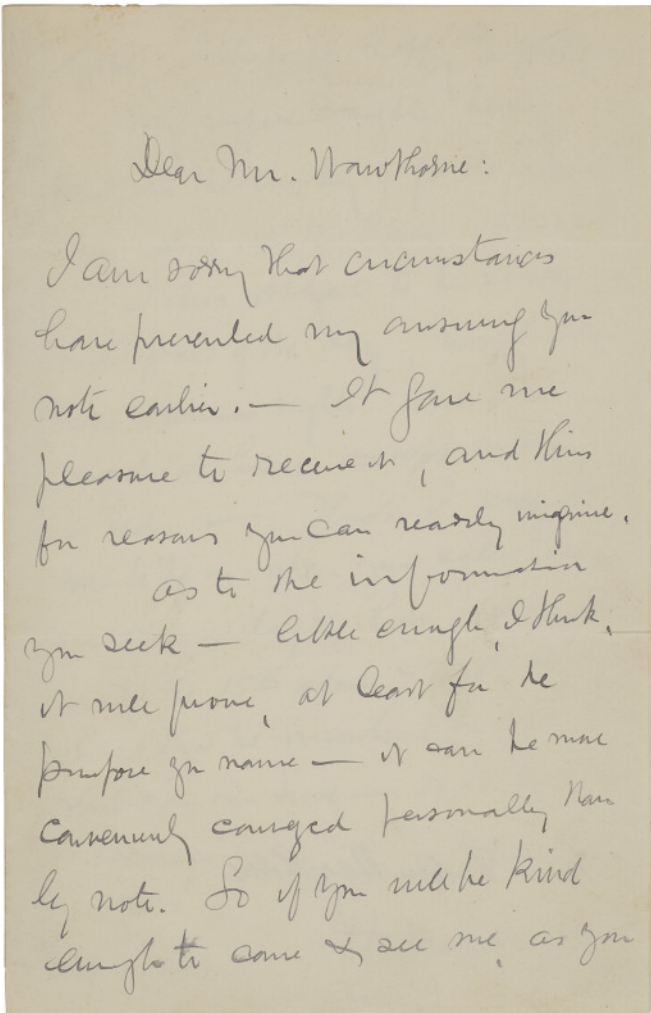 Dear Mr. Hawthorne:
I am sorry that circumstances
have prevented my answering your
note earlier. — It gave me
pleasure to receive it, and this
for reasons you can readily imagine.
As to the information
you seek — little enough, I think,
it will prove, at least for the
purpose you name — it can be more
conveniently conveyed personally than
by note. So if you will be kind
enough to come & see me, as you